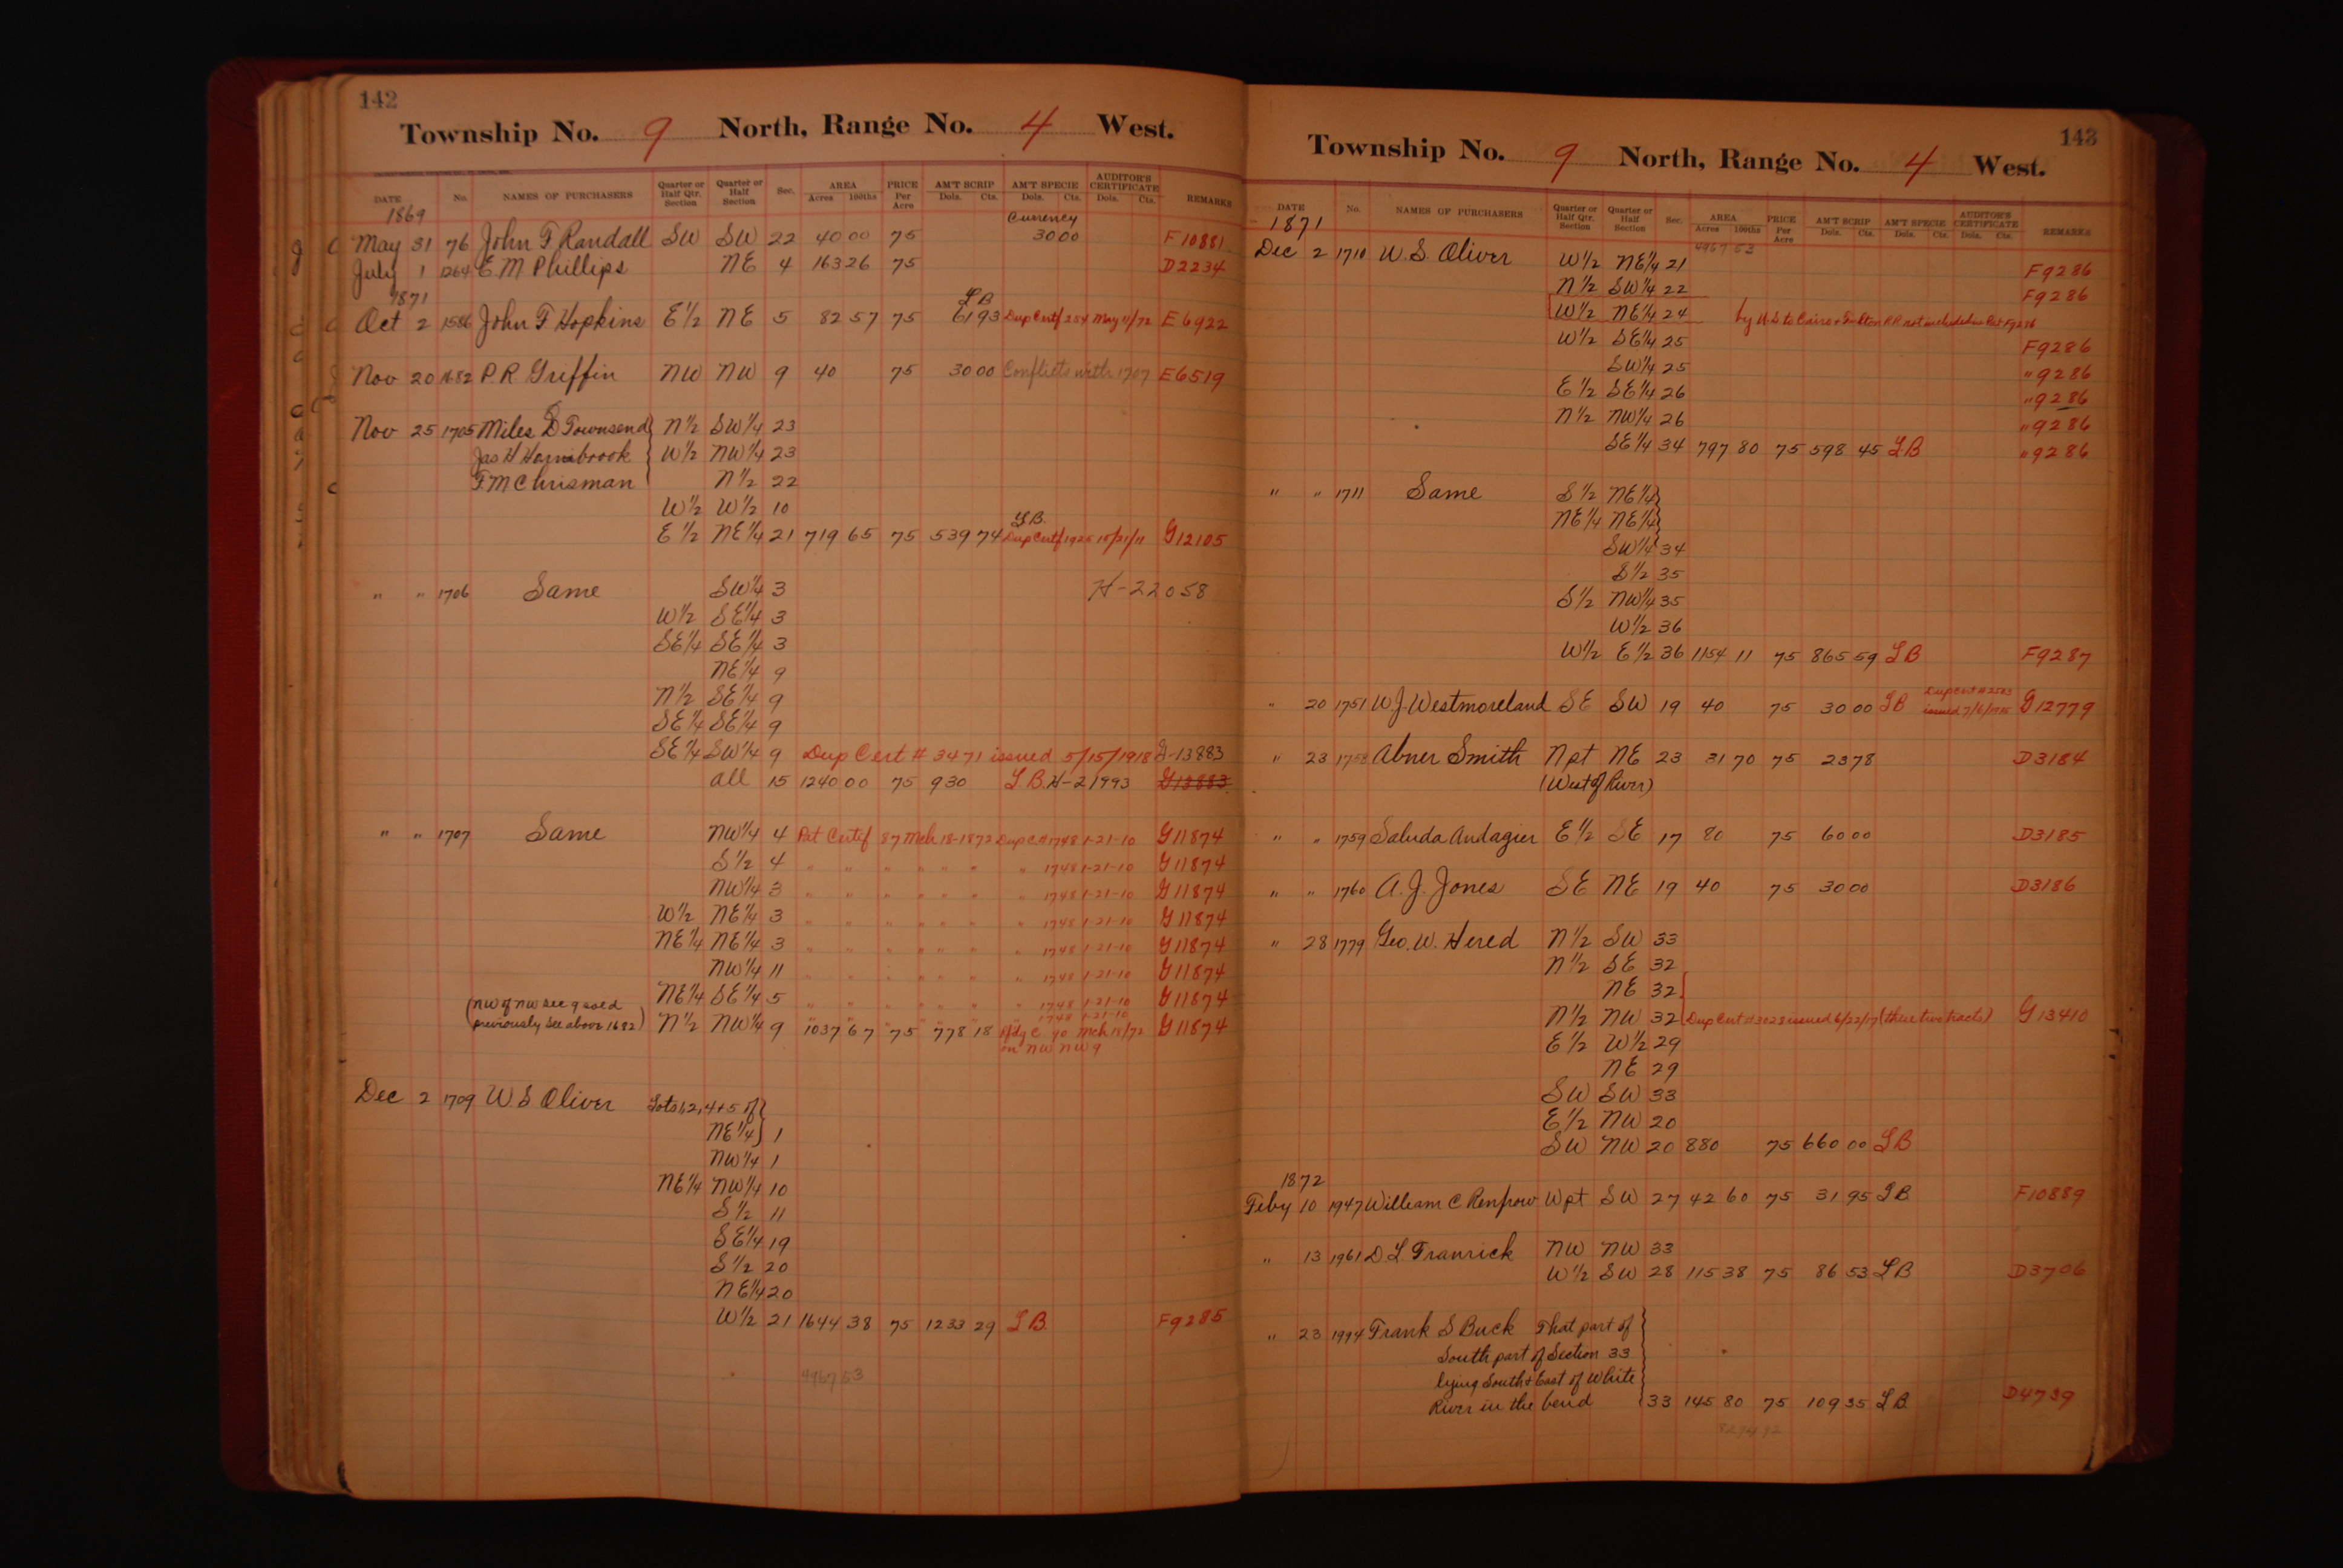 142
Township No. 9 North, Range No. 4 West.
DATE No. NAMES OF PURCHASERS Quarter or Half Qtr. Section Quarter or Half Section Sec. AREA Acres 100ths PRICE Per Acre AM'T SCRIP Dols. Cts. AM'T SPECIE Dols. Cts. AUDITOR'S CERTIFICATE Dols. Cts. REMARKS
1869 Currency
May 31 76 John F Randall SW SW 22 40 00 75 30 00 F10881
July 1 1264 E M Phillips NE 4 163 26 75 D2234
1871 LB
Oct 2 1586 John F Hopkins E½ NE 5 82 57 75 61 93 Dup Certf 254 May 11/72 E6922
Nov 20 1682 P R Griffin NW NW 9 40 75 30 00 Conflicts with 1707 E6519
Nov 25 1705 Miles D Townsend N½ SW¼ 23
Jas H Hornibrook W½ NW¼ 23
F M Chrisman N½ 22
W½ W½ 10
LB.
E½ NE¼ 21 719 65 75 539 74 Dup Certf G12105
" " 1706 Same SW¼ 3 H-22058
W½ SE¼ 3
SE¼ SE¼ 3
NE¼ 9
N½ SE¼ 9
SE¼ SE¼ 9
SE¼ SW¼ 9 Dup Cert # 3471 issued 5/15/1918 G-13883
all 15 1240 00 75 930 L.B. H-21993 G13883
" " 1707 Same NW¼ 4 Pat Certif 87 Mch 18-1872 Dup C# 1748 1-21-10 G11874
S½ 4 " " " " " " " 1748 1-21-10 G11874
NW¼ 3 " " " " " " " 1748 1-21-10 G11874
W½ NE¼ 3 " " " " " " " 1748 1-21-10 G11874
NE¼ NE¼ 3 " " " " " " " 1748 1-21-10 G11874
NW¼ 11 " " " " " " " 1748 1-21-10 G11874
NE¼ SE¼ 5 " " " " " " " 1748 1-21-10 G11874
(NW of NW Sec 9 sold 1748 1-21-10
previously See above 1682) N½ NW¼ 9 1037 67 75 778 18 C. 90 Mch 18/72 G11874
on NW NW 9
Dec 2 1709 W. S Oliver Lots 1,2,4+5 of
NE¼ 1
NW¼ 1
NE¼ NW¼ 10
S½ 11
SE¼ 19
S½ 20
NE¼ 20
W½ 21 1644 38 75 1233 29 L B. F9285
4467 53
143
Township No. 9 North, Range No. 4 West.
DATE No. NAMES OF PURCHASERS Quarter or Half Qtr. Section Quarter or Half Section Sec. AREA Acres 100ths PRICE Per Acre AM'T SCRIP Dols. Cts. AM'T SPECIE Dols. Cts. AUDITOR'S CERTIFICATE Dols. Cts. REMARKS
1871 4967 53
Dec 2 1710 W. S. Oliver W½ NE¼ 21 F9286
N½ SW¼ 22 F9286
W½ NE¼ 24 by U.S to Cairo & Fulton R.R. not included in Pat F9286
W½ SE¼ 25 F9286
SW¼ 25 "9286
E½ SE¼ 26 "9286
N½ NW¼ 26 "9286
SE¼ 34 797 80 75 598 45 LB "9286
" " 1711 Same S½ NE¼
NE¼ NE¼
SW¼ 34
S½ 35
S½ NW¼ 35
W½ 36
W½ E½ 36 1154 11 75 865 59 LB F9287
" 20 1751 W J. Westmoreland SE SW 19 40 75 30 00 LB Dup Cert # 2503 issued G12779
" 23 1758 Abner Smith N pt NE 23 31 70 75 23 78 D3184
(West of River)
" " 1759 Saluda Andagier E½ SE 17 80 75 60 00 D3185
" " 1760 A. J. Jones SE NE 19 40 75 30 00 D3186
" 28 1779 Geo. W. Hered N½ SW 33
N½ SE 32
NE 32
N½ NW 32 Dup Cert # 3023 issued 6/22/17 (these two tracts) G13410
E½ W½ 29
NE 29
SW SW 33
E½ NW 20
SW NW 20 880 75 660 00 LB
1872
Feby 10 1947 William C Renfrow W pt SW 27 42 60 75 31 95 LB F10889
" 13 1961 D L Franrick NW NW 33
W½ SW 28 115 38 75 86 53 LB D3706
" 23 1994 Frank S Buck That part of
South part of Section 33
lying South & East of White
River in the bend 33 145 80 75 109 35 LB D4739